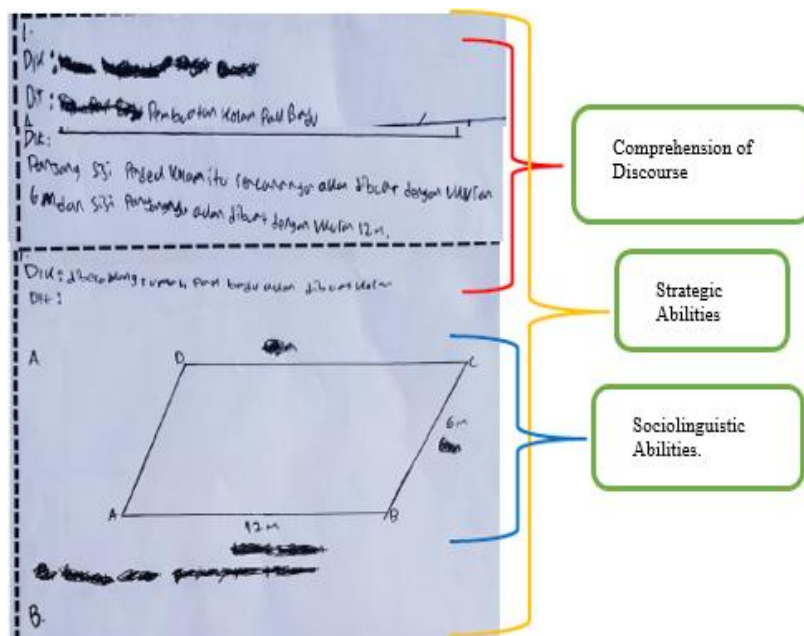 1.
Dik:
Dit: Pembuatan kolam Pak Badu
A
Dik:
Panjang sisi Pendek kolam itu rencananya akan dibuat dengan ukuran
6 m dan sisi Panjangnya akan dibuat dengan ukuran 12 m.
1.
Dik: dibelakang rumah Pak badu akan dibuat kolam
Dit:
m
A
D
C
6 m
A
B
12 m
B.
Comprehension of
Discourse
Strategic
Abilities
Sociolinguistic
Abilities.